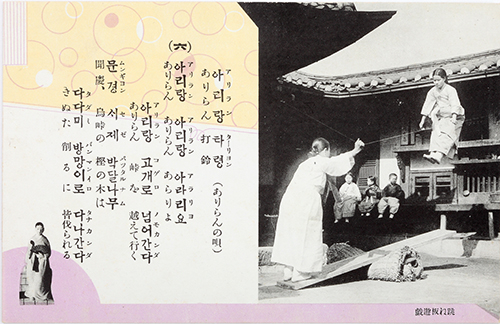 (六)
アリラン ターリョン
아리랑 하령
ありらん 打鈴 (ありらんの唄)
アリラン アリラン アラリヨ
아리랑 아리랑 아라리요
ありらん ありらん あらりよ
アリラン コゲロ ノモカンダ
아리랑 고개로 넘어간다
ありらん 峠を 越えて行く
ムンギョン セゼ パクタルナム
문경 서제 박달나무
聞慶、鳥の峠の 樫の木は
다다미 방망이로 다나간다
きぬた 削るに 皆伐られる
跳ね板遊戯